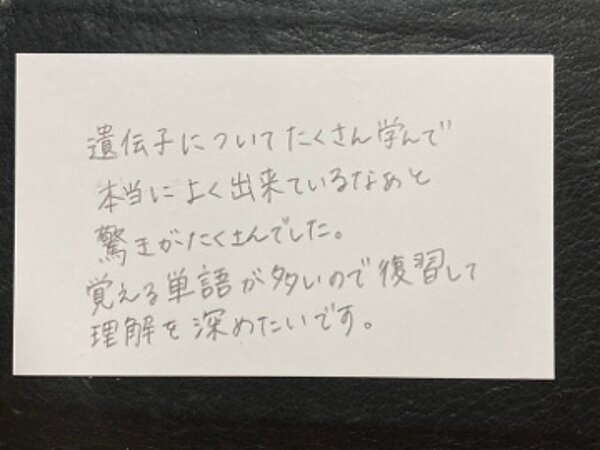 遺伝子についてたくさん学んで
本当によく出来ているなぁと
驚きがたくさんでした。
覚える単語が多いので復習して
理解を深めたいです。